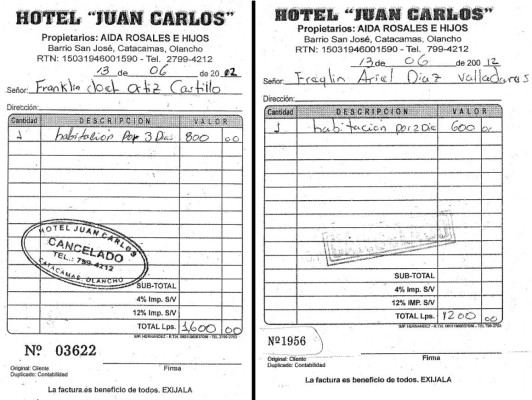 HOTEL "JUAN CARLOS"
Propietarios: AIDA ROSALES E HIJOS
Barrio San José, Catacamas, Olancho
RTN: 15031946001590 - Tel. 2799-4212
13 de 06 de 20
Señor: Franklin Joel Ortiz Castillo
Dirección:
Cantidad DESCRIPCIÓN VALOR
1 habitacion por 3 Dias 800 00
HOTEL JUAN CARLOS
CANCELADO
TEL.: 799-4212
CATACAMAS, OLANCHO
SUB-TOTAL
4% Imp. S/V
12% Imp. S/V
TOTAL Lps. 1,600 00
Nº 03622
Original: Cliente
Duplicado: Contabilidad
Firma
La factura es beneficio de todos. EXIJALA
HOTEL "JUAN CARLOS"
Propietarios: AIDA ROSALES E HIJOS
Barrio San José, Catacamas, Olancho
RTN: 15031946001590 - Tel. 799-4212
13 de 06 de 200 12
Señor: Ariel Diaz Valladares
Dirección:
Cantidad DESCRIPCIÓN VALOR
1 habitacion por 2 Dia 600 00
SUB-TOTAL
4% IMP. S/V
12% Imp. S/V
TOTAL Lps. 1200 00
Nº 1956
Original: Cliente
Duplicado: Contabilidad
Firma
La factura es beneficio de todos. EXIJALA